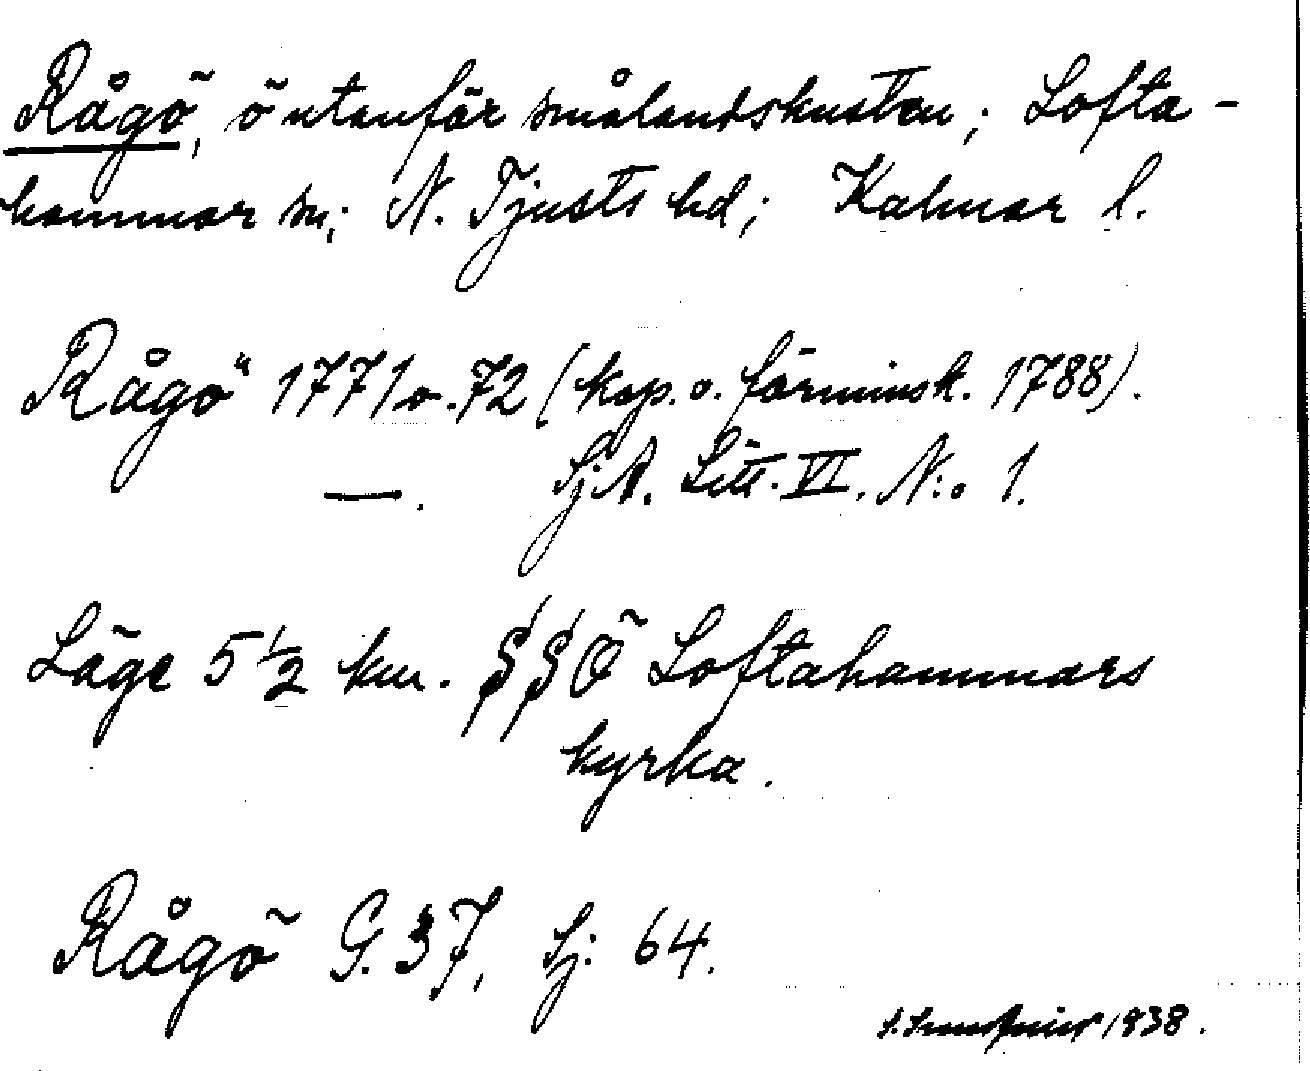 Rågö, ö utanför smålandskusten; Lofta-
hammar sn; N. Tjusts hd; Kalmar l.
Rågö 1771 o. 72 (kop. o. förminsk. 1788).
—. Sj A. Litt. VI. N:o 1.
Läge 5 1/2 km. SSÖ Loftahammars
kyrka.
Rågö G. 37, Sj: 64.
1938.